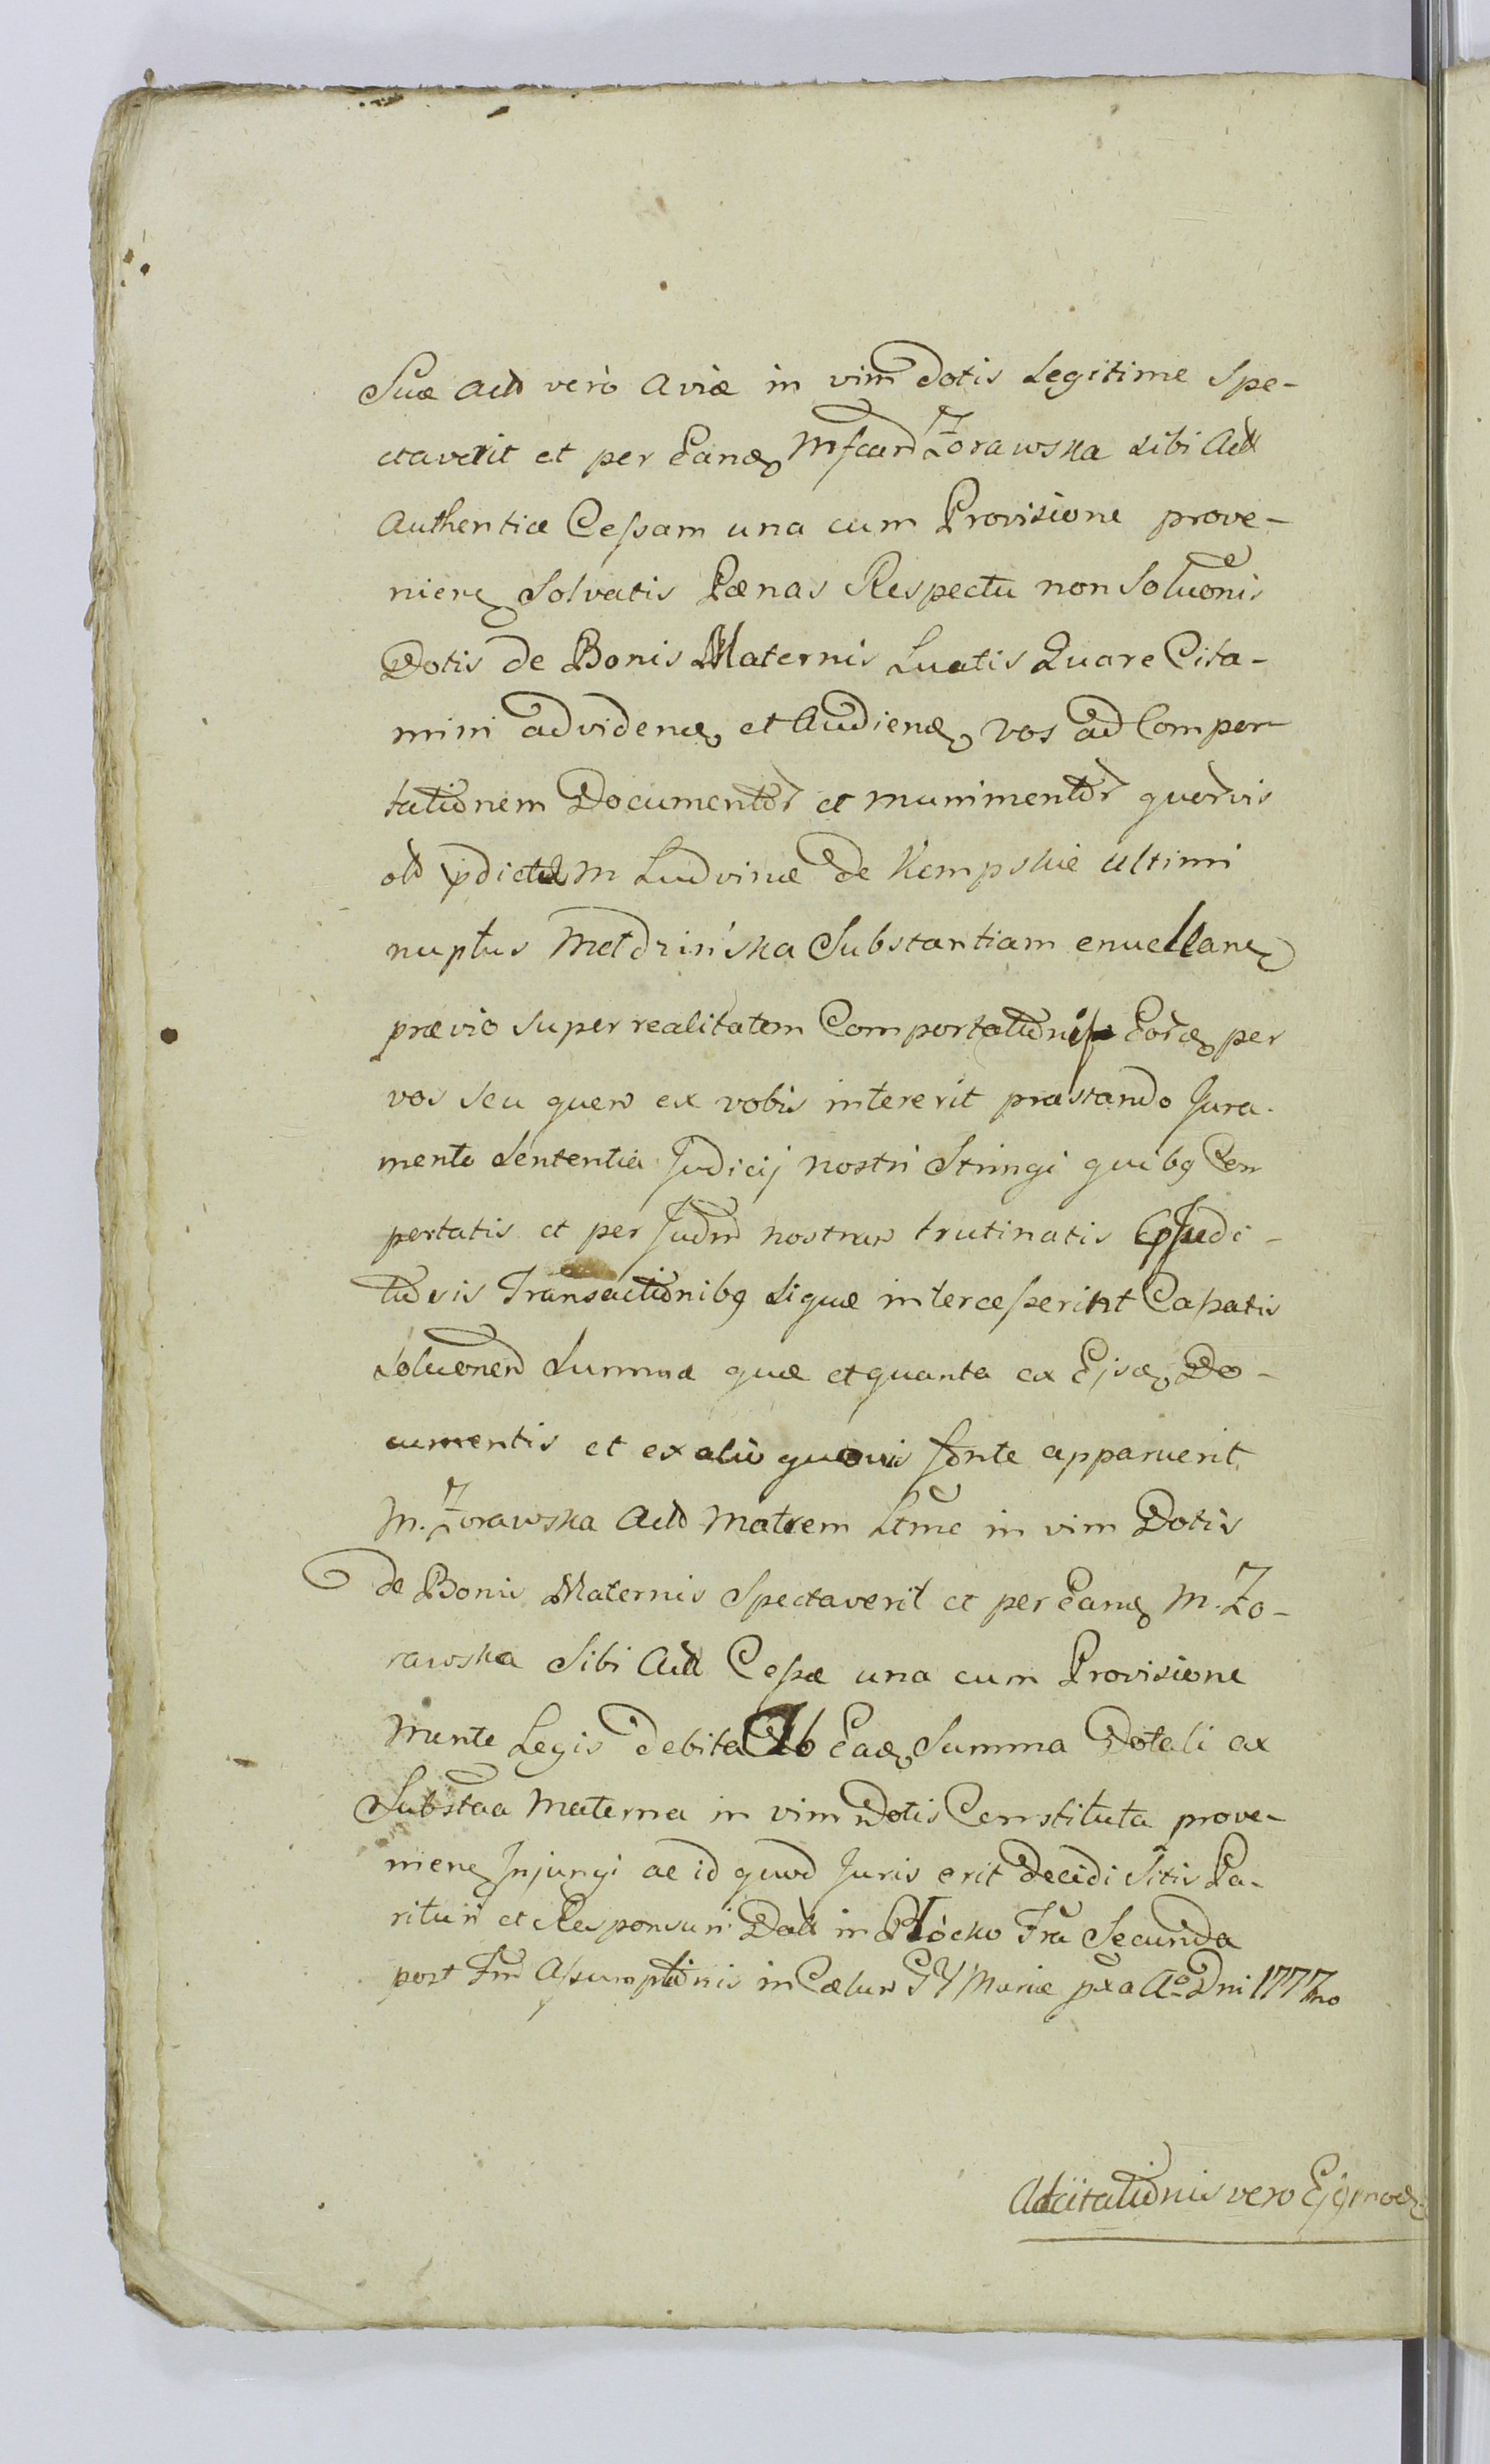 Suæ Actt verò Aviæ in vim Dotis Legitime Spe-
ctaverit et per Eand Mfcam Zorawska sibi Actt
Authentice Cessam una cum Provisione prove-
nien Solvatis Pænas Respectu non Soluonis
Dotis de Bonis Maternis Luatis Quare Cita-
mini ad videnđ et Audienđ vos ad Compor-
tationem Documentor et munimentor quorvis
olt pdictæ M Ludvinæ de Kempskie ultimi
nuptus Metdzińska Substantiam enucllan
prævio super realitatem Comportationis Eord per
vos seu quem ex vobis intererit præstando Jura-
mento Sententia Judicij nostri Stringi quibq Com
portatis et per Judm nostrum trutinatis
Transactionibq siquæ intercesserint Cassatis
soluonem Summæ quæ et quanta ex Ejsd Do-
cumentis et ex alio quovis fonte apparuerit
M. Zorawska Actt Matrem Ltme in vim Dotis
de Bonis Maternis Spectaverit et per Eand M. Zo-
rawska Sibi Actt Cessæ una cum Provisione
Mente Legis debita Ab Ead Summa Dotali ex
Substaa Materna in vim Dotis Constituta prove-
nien Injungi ac id quod Juris erit Decidi Sitis Pa-
rituri et Responsuri Datt in Płocko Fra Secunda
post Fm Assumptionis in Cælum BV Mariæ pxa Ao Dni 1777mo
Adcitationis vero Ejqmod